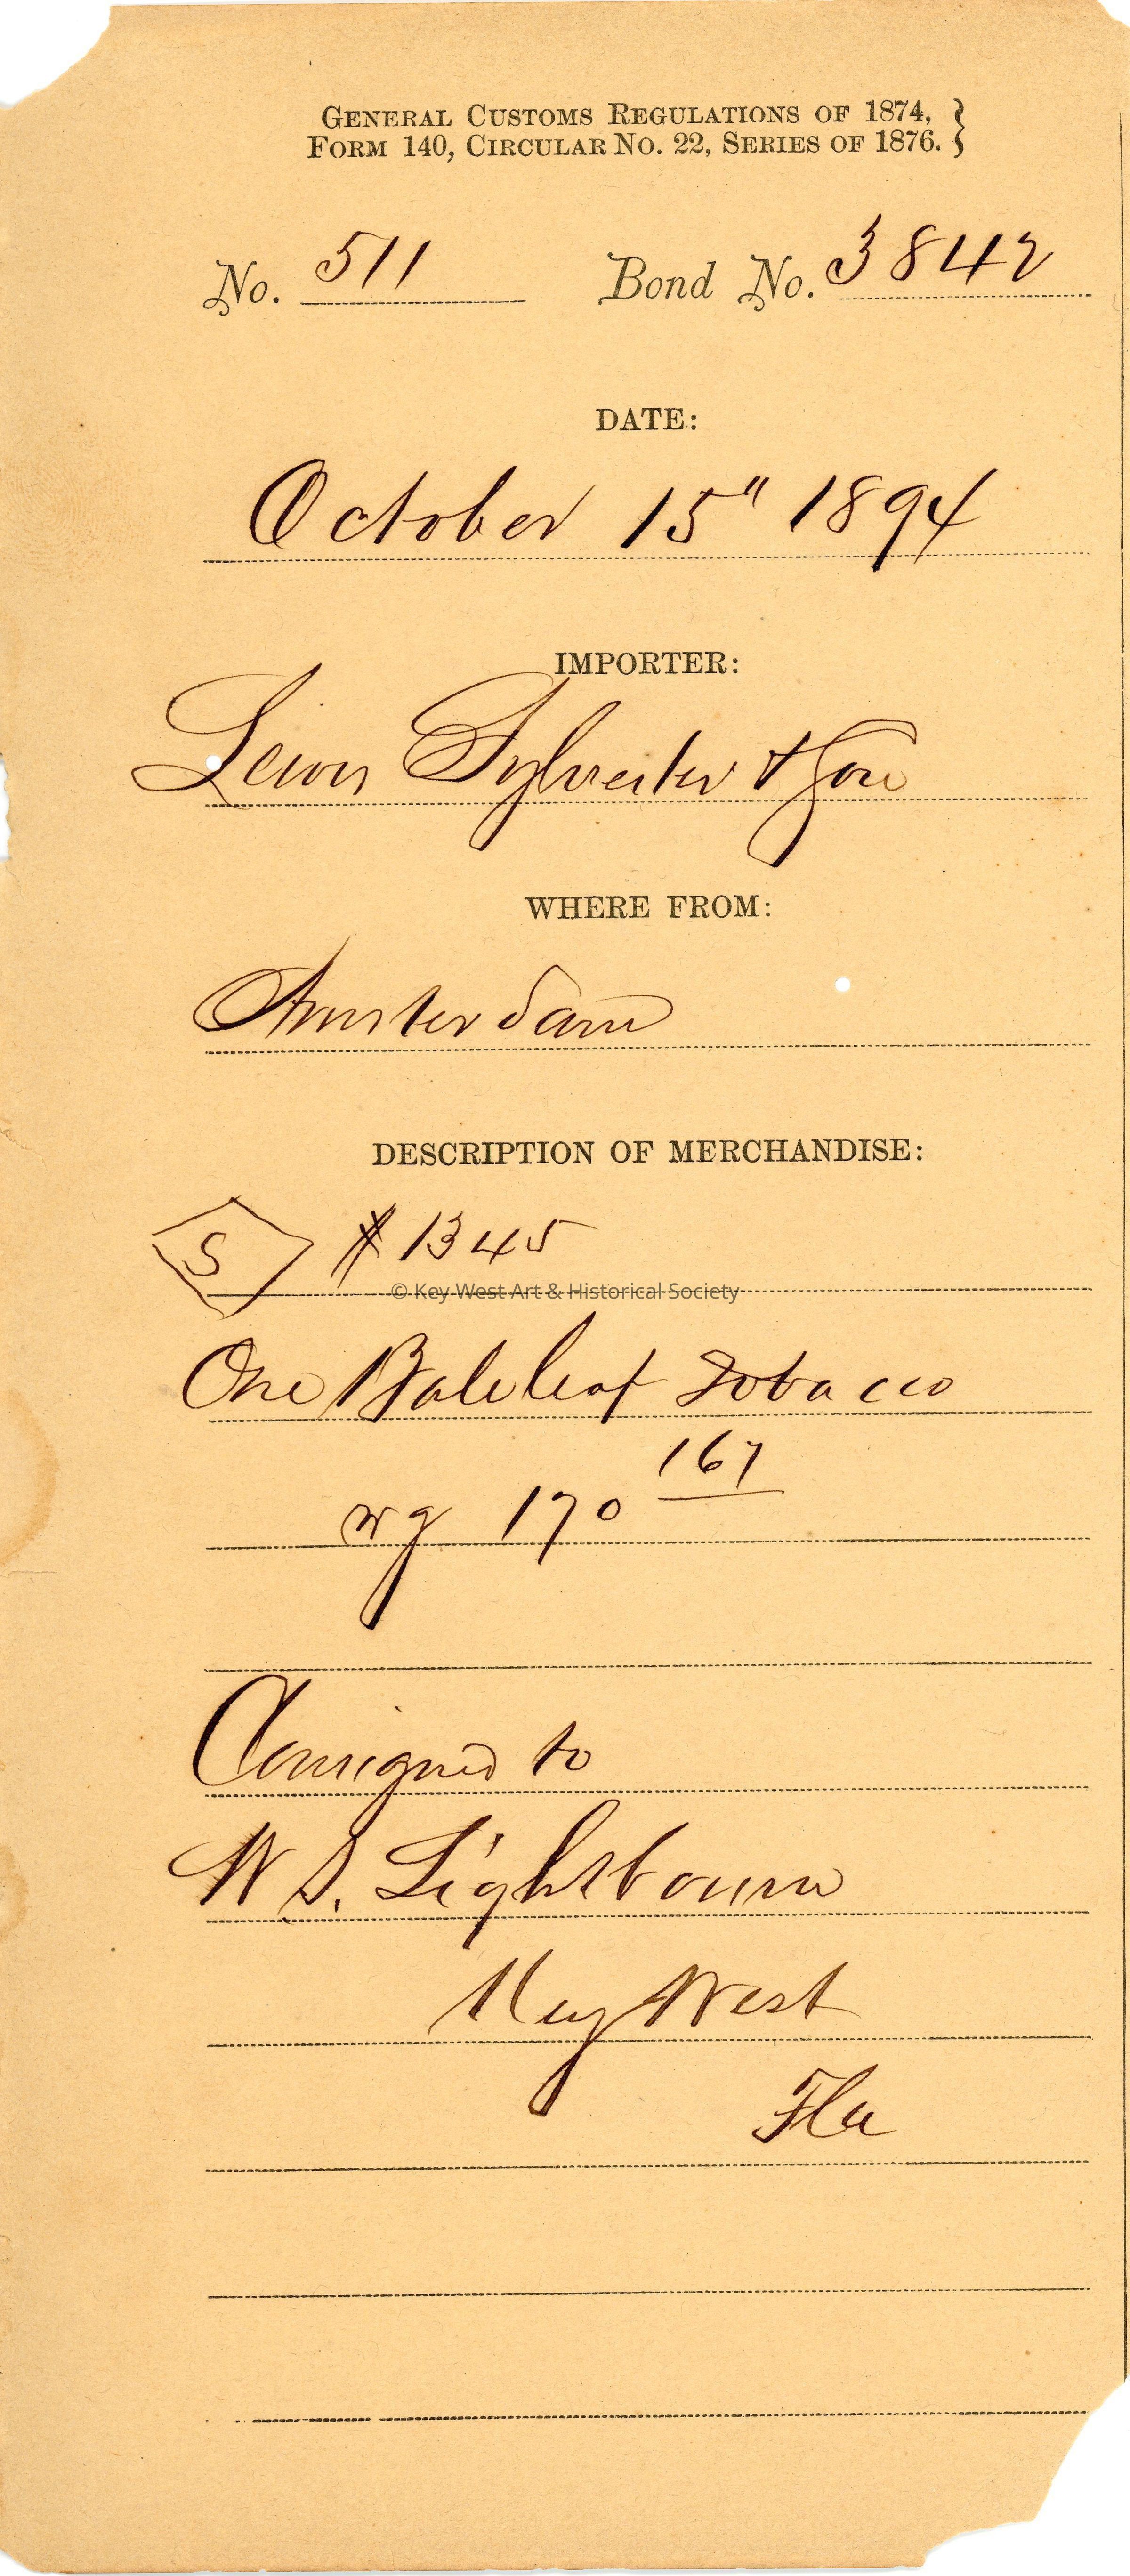 GENERAL CUSTOMS REGULATIONS OF 1874,
FORM 140, CIRCULAR NO. 22, SERIES OF 1876. }
No. 511 Bond No. 3842
DATE:
October 15" 1894
IMPORTER:
Lewis Sylvester & Son
WHERE FROM:
Amsterdam
DESCRIPTION OF MERCHANDISE:
S # 1345
© Key West Art & Historical Society
One Bale leaf Tobacco
167
wg 170
Consigned to
W D. Lightbourn
Key West
Fla